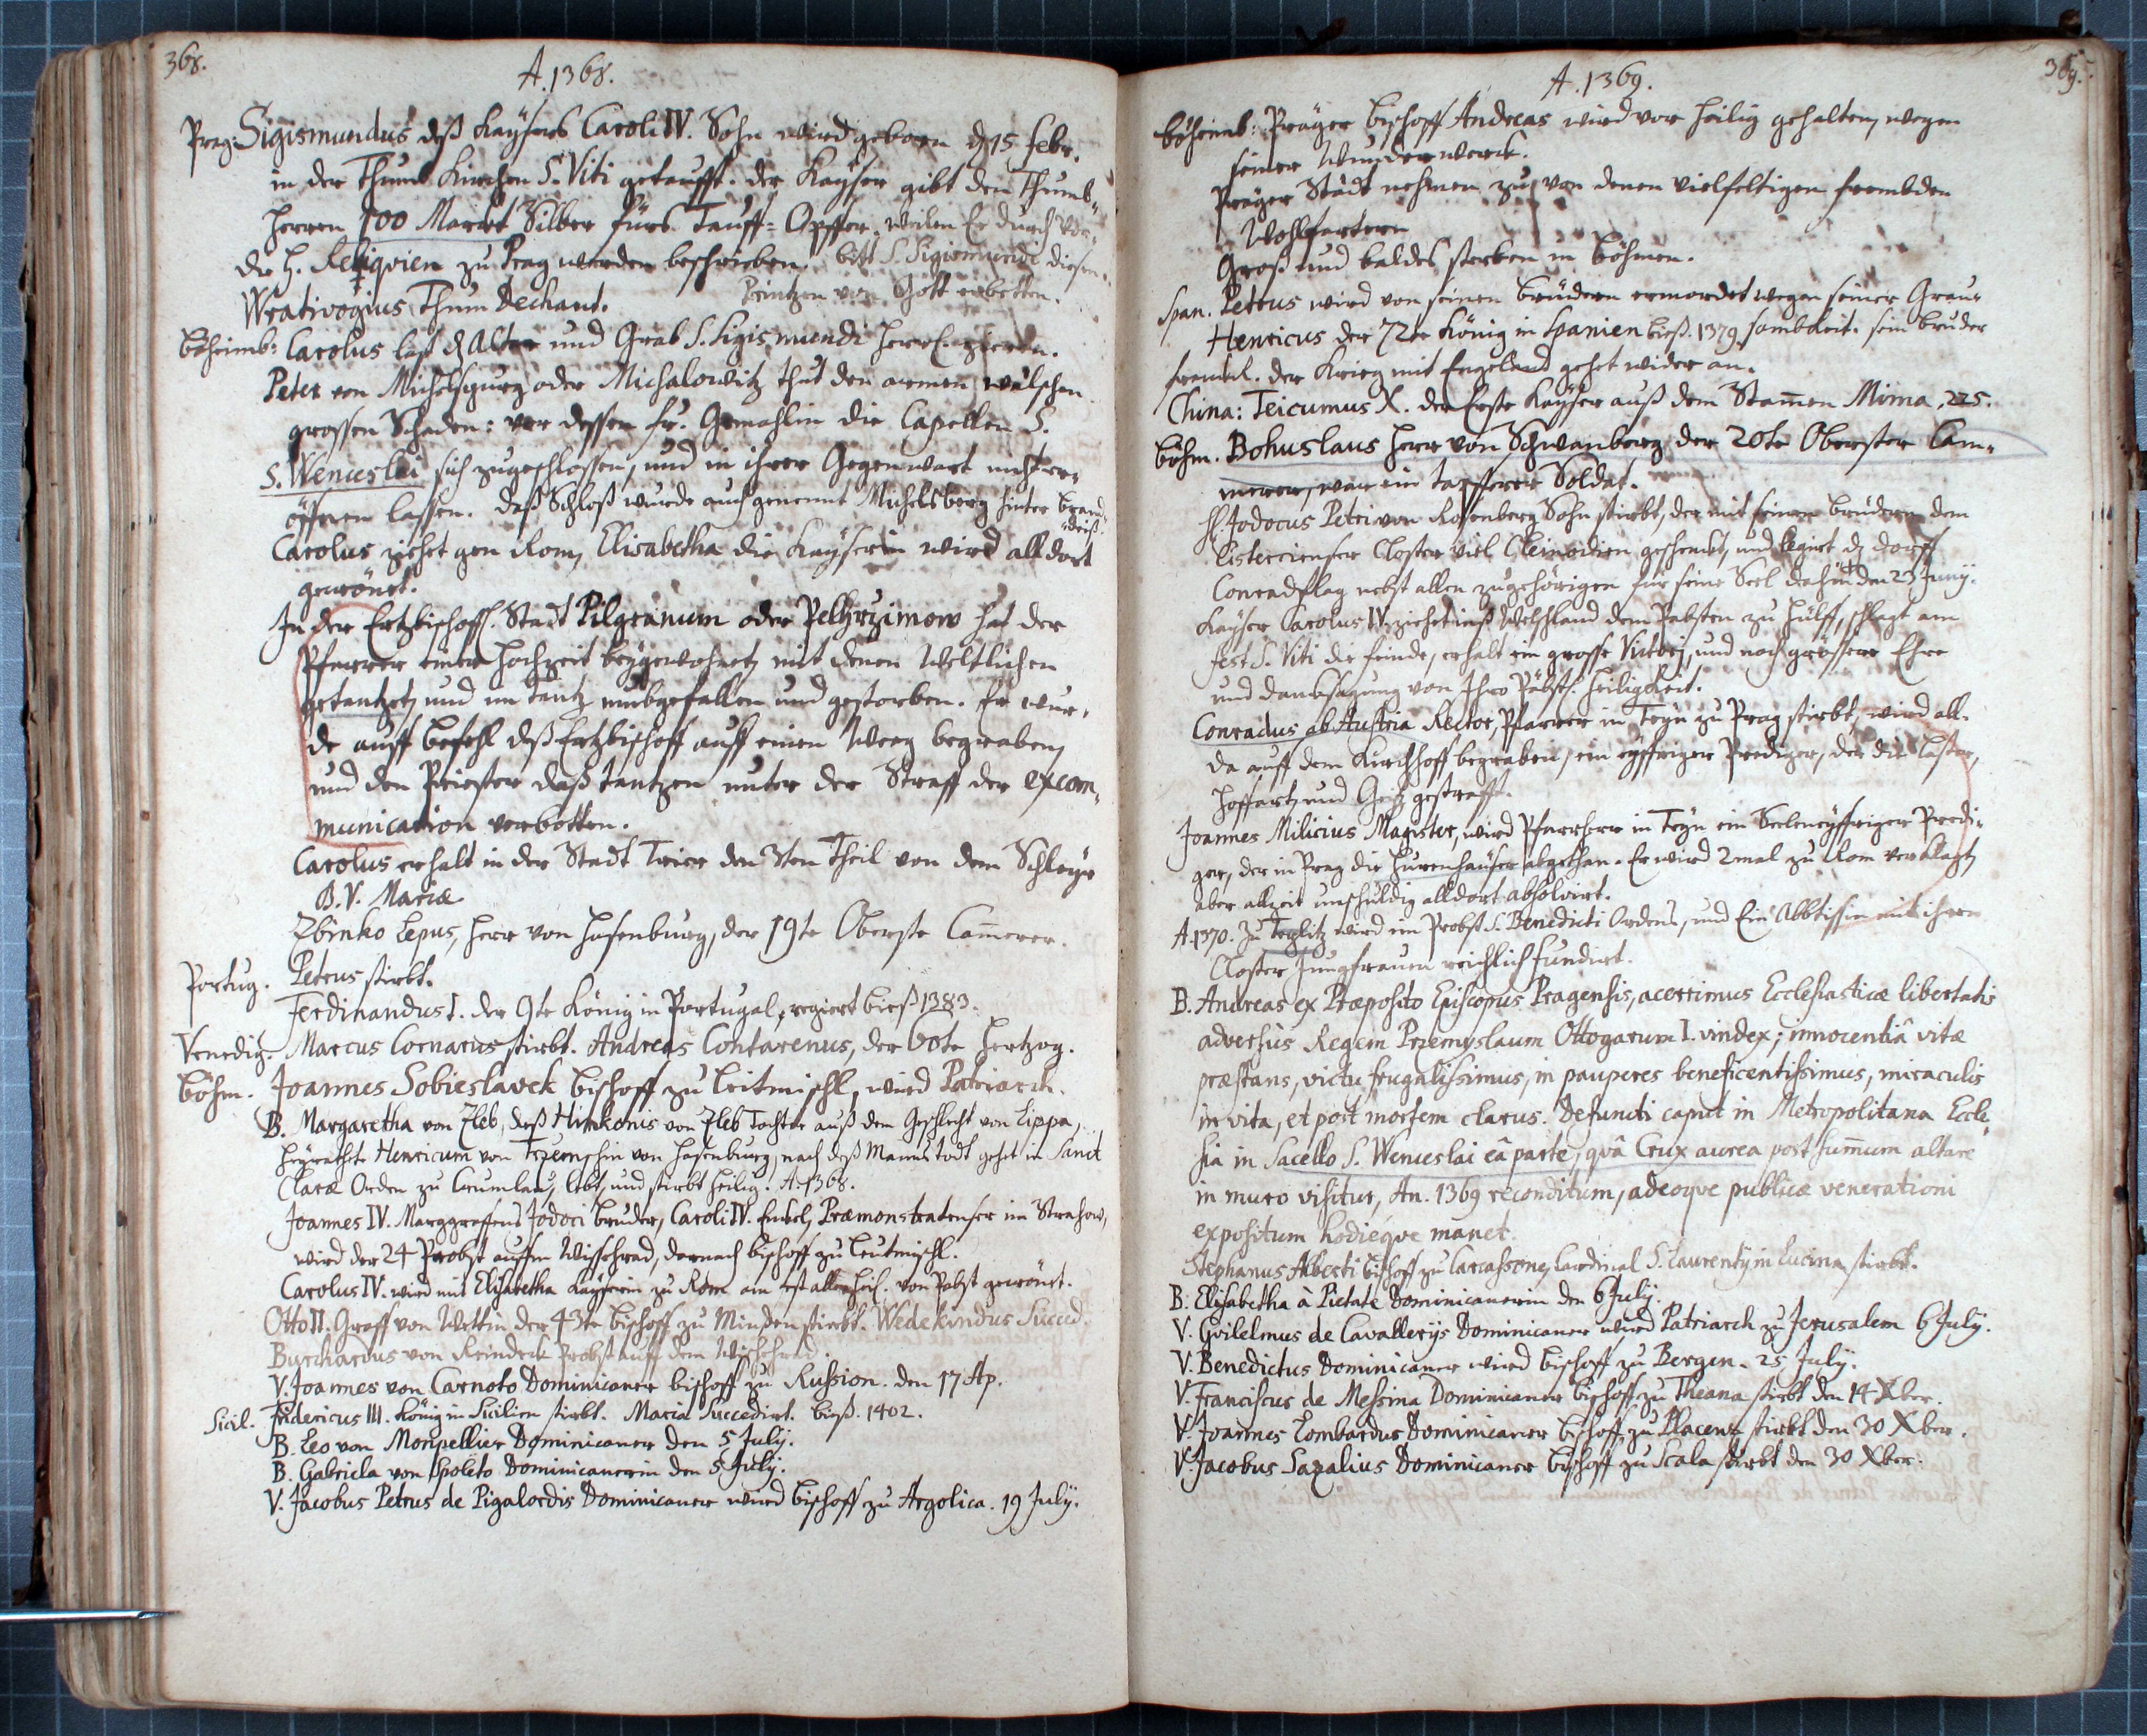 368.
A. 1368.
Prag: Sigismundus deß Kaÿsers Caroli IV. Sohn wird geborn d. 15 Febr.
in der Thumb Kirchen S. Viti getaufft. der Kaÿser gibt den Thumb-
herren 100 Marckt Silber fürs Tauff-Opffer. weilen Er durch Vor-
die H. Reliqvien zu Prag werden beschrieben. bitt S. Sigismundi diesen
Wrativogius Thum Dechant. Printzen von Gott erbetten.
Böheimb: Carolus last d. Altar und Grab S. Sigismundi herr. zieren.
Peter von Michelspurg oder Michalowitz thut den armen wälschen
grossen Schaden: vor dessen Fr. Gemahlin die Capellen S.
S. Wenceslai sich zugeschlossen, und in ihrer Gegenwart nicht er-
öffnen lassen. Daß Schloß wurde auch genennt Michelsberg hinter Brand-
deiß.
Carolus ziehet gen Rom, Elisabetha die Kaÿserin wird alldort
gecrönet.
In der Ertzbischoff. Stadt Pilgranum oder Pelhrzimow hat der
Pfarrer einer Hochzeit beÿgewohnet, mit denen Weltlichen
getantzet, und im Tantz umbgefallen und gestorben. Er wur-
de auff Befehl deß Ertzbischoff auff einen Weeg begraben,
und den Priester daß tantzen unter der Straff der excom-
munication verbotten.
Carolus erhalt in der Stadt Trier den 3ten Theil von dem Schleÿr
B. V. Mariæ.
Zbinko Lepus, Herr von Hasenburg, der 19te Oberste Cam̄erer.
Portug. Petrus stirbt.
Ferdinandus I. der 9te König in Portugal, regiert bieß 1383.
Venedig. Marcus Cornarus stirbt. Andreas Contarenus, der 60te Hertzog.
Böhm. Joannes Sobieslavek Bischoff zu Leitmischl, wird Patriarch.
B. Margaretha von Zleb, deß Hinkonis von Zleb Tochter auß dem Geschlecht von Lippa,
heÿrathete Henricum von Trzemschin von Hasenburg, nach deß Manns todt gehet in Sanct
Claræ Orden zu Crumlau, lebt, und stirbt heilig. A. 1368.
Joannes IV. Marggraffens Jodoci Bruder, Caroli IV. Enckel, Præmonstratenser im Strahow,
wird der 24 Probst auffm Wissehrad, darnach Bischoff zu Leutmischl.
Carolus IV. wird mit Elisabetha Kaÿserin zu Rom am Fest aller Heil. von Pabst gecrönet.
Otto II. Graff von Wettin der 43te Bischoff zu Minden stirbt. Wedekindus Succed.
Burchardus von Reindeck Probst auff dem Wischehrad.
V. Joannes von Carnoto Dominicaner Bischoff zu Russion. den 17 Ap.
Sicil. Fridericus III. König in Sicilien stirbt. Maria Succedirt. bieß. 1402.
B. Leo von Monpellier Dominicaner den 5 Julÿ.
B. Gabriela von Spoleto Dominicanerin den 5 Julÿ.
V. Jacobus Petrus de Pigalordis Dominicaner wird Bischoff zu Argolica. 19 Julÿ.
369.
A. 1369.
Böheimb: Präger Bischoff Andreas wird vor heilig gehalten, wegen
seiner Wunderwerck.
Präger Städt nehmen zu, von denen vielfeltigen frembden
Wohlfartern
Groß und baldes sterben in Böhmen.
Span. Petrus wird von seinen Brüdern ermordet wegen seiner Grau-
Henricus der 72te König in Spanien bieß. 1379. sambkeit. sein Bruder
Franckr. der Krieg mit Engeland gehet wider an.
China: Teicumus X. der Erste Kaÿser auß dem Stam̄en Mima, 225.
Böhm. Bohuslaus Herr von Schwanberg der 20te Oberster Cam-
merer, war ein tapfferer Soldat.
Jodocus Petri von Rosenberg Sohn stirbt, der mit seinen Brüdern dem
Cistercienser Closter viel Cleinodien geschenckt, und legirt d. dorff
Conradschlag nebst allen zugehörigen für seine Seel den 23 Junÿ.
Kaÿser Carolus IV. ziehet ins Welschland dem Pabsten zu hülff, schlagt am
Fest S. Viti die Feinde, erhalt ein grosse Victori, und noch grössere Ehre
und dancksagung von Ihro Päbstl. Heiligkeit.
Conradus ab Austria Rector, Pfarrer in Teyn zu Prag stirbt, wird all-
da auff dem Kirchhoff begraben, ein eÿffriger Prediger, der die Laster,
Hoffart, und Geitz gestrafft.
Joannes Milicius Magister, wird Pfarrherr in Teyn ein Seeleneÿffriger Predi-
ger, der in Prag die Hurenhäuser abgethan. Er wird 2mal zu Rom verklagt,
aber allzeit unschuldig alldort absolvirt.
A. 1370. Zu Teplitz wird ein Probst S. Benedicti Ordens, und Ein Abbtissin mit ihren
Closter Jungfrauen reichlich fundirt.
B. Andreas ex Præposito Episcopus Pragensis, acerrimus Ecclesiasticæ libertatis
adversùs Regem Przemyslaum Ottogarum I. vindex; innocentiâ vitæ
præstans, victu frugalissimus, in pauperes beneficentissimus, miraculis
in vita, et post mortem clarus. Defuncti caput in Metropolitana Eccle-
sia in Sacello S. Wenceslai eâ parte, quâ Crux aurea post sum̄um altare
in muro visitur, An. 1369 reconditum, adeoqve publicæ venerationi
expositum hodieqve manet.
Stephanus Alberti Bischoff zu Carcassone, Cardinal S. Laurentÿ in Lucina stirbt.
B. Elisabetha à Pietate Dominicanerin den 6 Julÿ.
V. Gvilelmus de Cavallerijs Dominicaner wird Patriarch zu Jerusalem 6 Julÿ.
V. Benedictus Dominicaner wird Bischoff zu Bergen. 25 Julÿ.
V. Franciscus de Messina Dominicaner Bischoff zu Theana stirbt den 14 Xber.
V. Joannes Lombardus Dominicaner Bischoff zu Placenz stirbt den 30 Xber.
V. Jacobus Sazalius Dominicaner Bischoff zu Scala stirbt den 30 Xber.